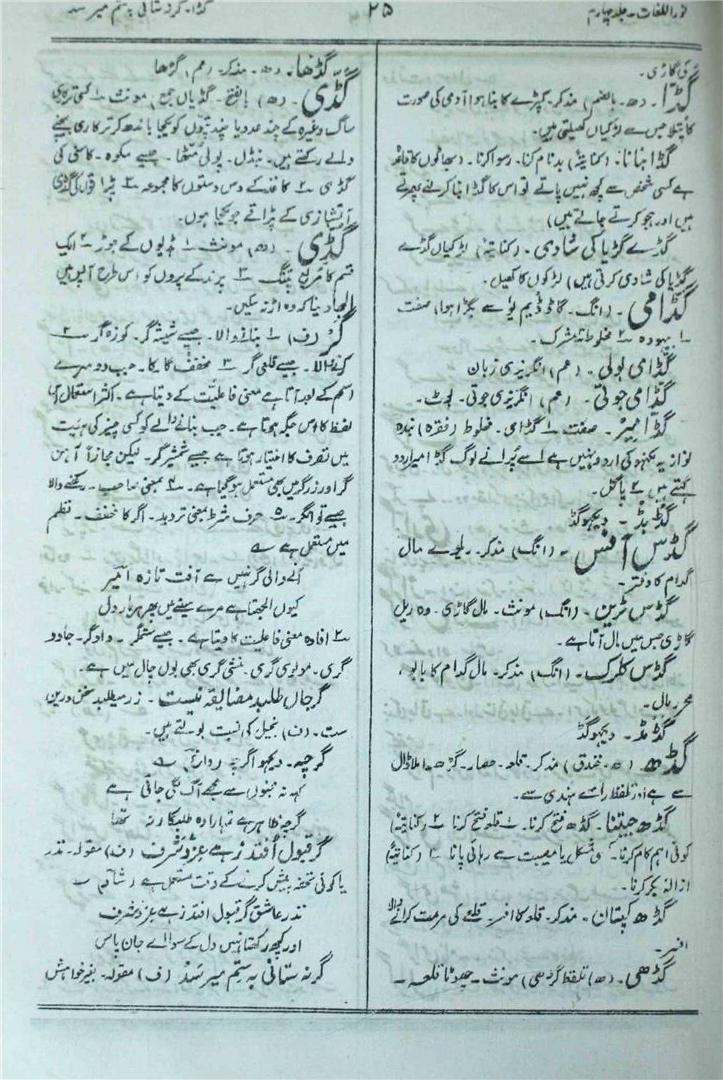 نور اللغات۔ جلد چہارم
۲۵
گڈا۔ گر نستانی بہ ستم میرسد
کی گاڑی۔
گڈا۔ (ھ۔ بالضم) مذکر۔ کپڑے کا بنا ہوا آدمی کی صورت
کا پتلا جس سے لڑکیاں کھیلتی ہیں۔
گڈا بنانا۔ (کنایۃً) بدنام کرنا۔ رسوا کرنا۔ (بھاٹوں کا قاعدہ
ہے کسی شخص سے کچھ نہیں پاتے تو اس کا گڈا بنا کر لئے پھرتے
ہیں اور ہجو کرتے جاتے ہیں)
گڈے گڑیا کی شادی۔ (کنایۃً) لڑکیاں گڈے
گڑیا کی شادی کرتی ہیں) لڑکوں کا کھیل۔
گڈامی۔ (انگ۔ گاڈ ڈیم یُو سے بگڑا ہوا) صفت
۱ بیہودہ ۲ مخلوط
گڈامی بولی۔ (عم) انگریزی زبان
گڈامی جوتی۔ (عم) انگریزی جوتی۔ بوٹ۔
گڈامیر۔ صفت ۱ گڈامی۔ مخلوط (فقرہ) بندہ
نواز یہ لکھنؤ کی اردو نہیں ہے اسے پرانے لوگ گڈامیر اردو
کہتے ہیں ۲ پاگل۔
گڈبڈ۔ دیکھو گڈ
گڈس آفس۔ (انگ) مذکر۔ ریلوے مال
گدام کا دفتر۔
گڈس ٹرین۔ (انگ) مونث۔ مال گاڑی۔ وہ ریل
گاڑی جس میں مال آتا ہے۔
گڈس کلرک۔ (انگ) مذکر۔ مال گدام کا بابو،
محرر مال۔
گڈمڈ۔ دیکھو گڈ
گڈھ (ھ۔ خندق) مذکر۔ قلعہ۔ حصار۔ گڑھ۔ املا ڈال
سے ہے اور تلفظ رائے ہندی سے۔
گڈھ جیتنا۔ گڈھ فتح کرنا۔ ۱ قلعہ فتح کرنا ۲ (کنایۃً)
کوئی اہم کام کرنا۔ کسی مشکل یا مصیبت سے رہائی پانا ۳ (کنایۃً)
ازالہ بکر کرنا۔
گڈھ کپتان۔ مذکر۔ قلعہ کا افسر۔ قلعے کی مرمت کرانے والا
افسر۔
گڈھی۔ (ھ) تلفظ گڑھی) مونث۔ چھوٹا قلعہ۔
گڈھا۔ (ھ)۔ مذکر۔ (عم) گڑھا
گڈی۔ (ھ) بالفتح۔ گڈیاں جمع) مونث ۱ کسی ترکاری
ساگ وغیرہ کے چند عدد یا چند پتوں کو یکجا باندھ کر ترکاری بیچنے
والے رکھتے ہیں۔ بنڈل۔ پولی مٹھا۔ جیسے سکوہ۔ کاسنی کی
گڈی ۲ کاغذ کے دس دستوں کا مجموعہ ۳
آتشبازی کے پڑاتے جو یکجا ہوں۔
گڈی۔ (ھ) مونث ۱ ہڈیوں کے جوڑ ۲ ایک
قسم کا مربع پتنگ ۳ پرند کے پروں کو اس طرح آپس میں
الجھا دینا کہ وہ اڑ نہ سکیں۔
گر (ف) ۱ بنانے والا۔ جیسے شیشہ گر۔ کوزہ گر ۲
کرنے والا۔ جیسے قلعی گر ۳ مخفف گار کا۔ جب دوسرے
اسم کے بعد آتا ہے معنی فاعلیت کے دیتا ہے۔ اکثر استعمال اس
لفظ کا اس جگہ ہوتا ہے۔ جب بنانے والے کو کسی چیز کی ہیئت
میں تصرف کا اختیار ہوتا ہے جیسے شمشیر گر۔ لیکن مجازاً آہن
گر اور زرگر میں بھی مستعمل ہو گیا ہے۔ ۴ بمعنی صاحب۔ رکھنے والا
جیسے توانگر۔ ۵ حرف شرط بمعنی تردید۔ اگر کا مخفف۔ نظم
میں مستعمل ہے ؎
آنے والی گر نہیں ہے آفت تازہ امیر
کیوں الجھتا ہے مرے سینے میں پھر ہر بار دل
۶ افادہ معنی فاعلیت کا دیتا ہے۔ جیسے ستمگر۔ دادگر۔ جادو
گری۔ مولوی گری۔ منشی گری بھی بول چال میں ہے۔
گر جاں طلبد مضایقہ نیست۔ زر میطلبد سخن درین
ست۔ (ف) بخیل کی نسبت بولتے ہیں۔
گرچہ۔ دیکھو اگرچہ
کہہ نہ تبوں سے مجھے آگ لگی جاتی ہے
گرچہ ظاہر ہے تمہارا دہ طلبگار نہ تھا
گر قبول افتد زہے عز و شرف (ف) مقولہ۔ نذر
یا کوئی تحفہ پیش کرنے کے وقت مستعمل ہے ؎
نذر عاشق گر قبول افتد زہے عز و شرف
اور کچھ رکھتا نہیں دل کے سوائے جان یاس
گر نہ ستانی بہ ستم میرسد (ف) مقولہ۔ بغیر خواہش